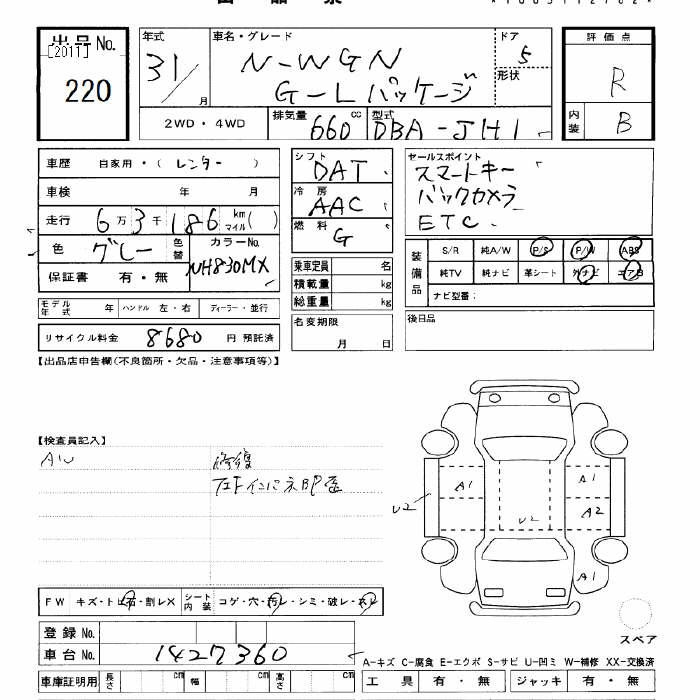 出品No.
[2011]
220
年式
31/
月
車名・グレード
N-WGN
G-Lパッケージ
ドア
5
形状
評価点
R
内装
B
2WD・4WD
排気量
660 cc
型式
DBA-JH1
車歴
自家用・( レンター )
車検
年 月
走行
6万3千186 km マイル( )
色
グレー
色替
カラーNo.
NH830MX
保証書
有・無
シフト
DAT
冷房
AAC
燃料
G
セールスポイント
スマートキー
バックカメラ
ETC
装備品
S/R 純A/W P/S P/W ABS
純TV 純ナビ 革シート 外ナビ エアB
ナビ型番:
乗車定員 名
積載量 kg
総重量 kg
モデル年式 年
ハンドル 左・右
ディーラー・並行
名変期限
月 日
後日品
リサイクル料金 8680 円 預託済
【出品店申告欄(不良箇所・欠品・注意事項等)】
【検査員記入】
AW
修復
A1
A1
A2
U2
U2
A1
FW キズ・トビ石・割レX
シート内装 コゲ・穴・汚レ・シミ・破レ・スレ
登録No.
車台No. 1427360
スペア
A-キズ C-腐食 E-エクボ S-サビ U-凹ミ W-補修 XX-交換済
車庫証明用 長さ cm 幅 cm 高さ cm
工具 有・無
ジャッキ 有・無